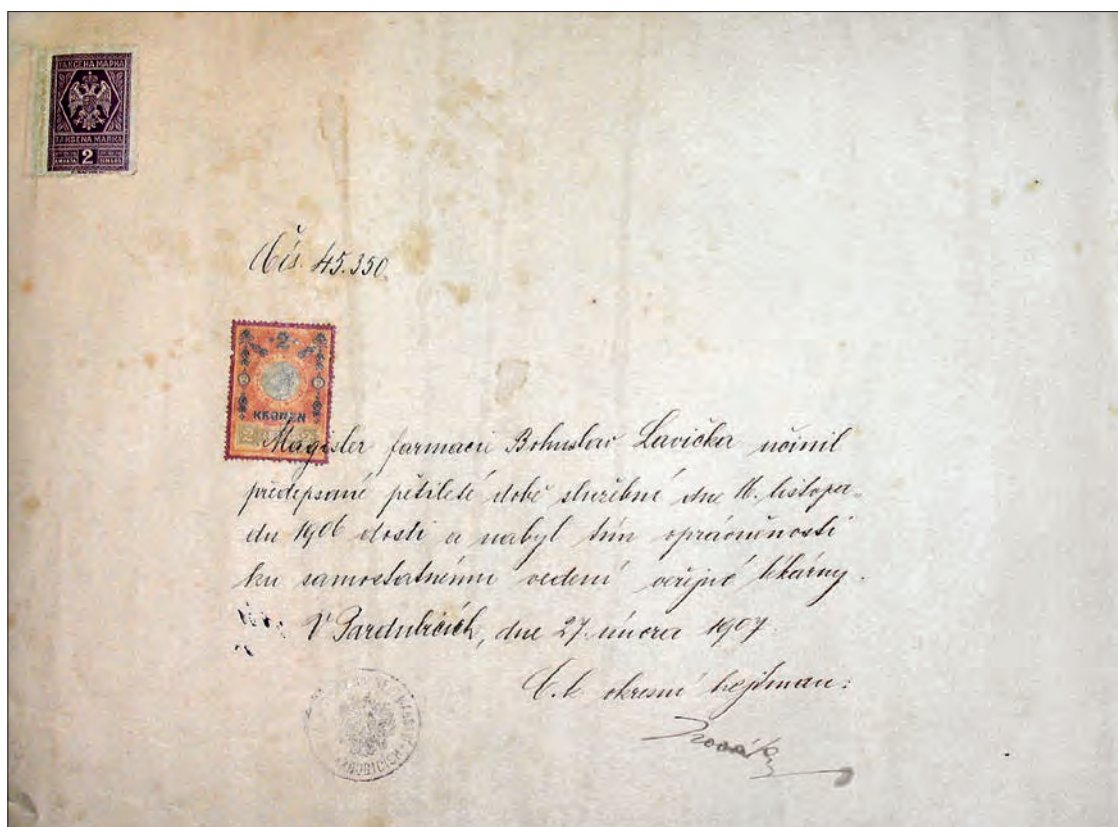 ТАКСЕНА МАРКА
TAKSENA MARKA
2
Čís. 45.350.
2
KRONEN
Magister farmacie Bohuslav Lavička učinil
předepsané pětileté době služební dne 16. listopa-
du 1906 dosti a nabyl tím oprávněnosti
ku samostatnému vedení veřejné lékárny.
V Pardubicích, dne 27. února 1907.
C. k. okresní hejtman: